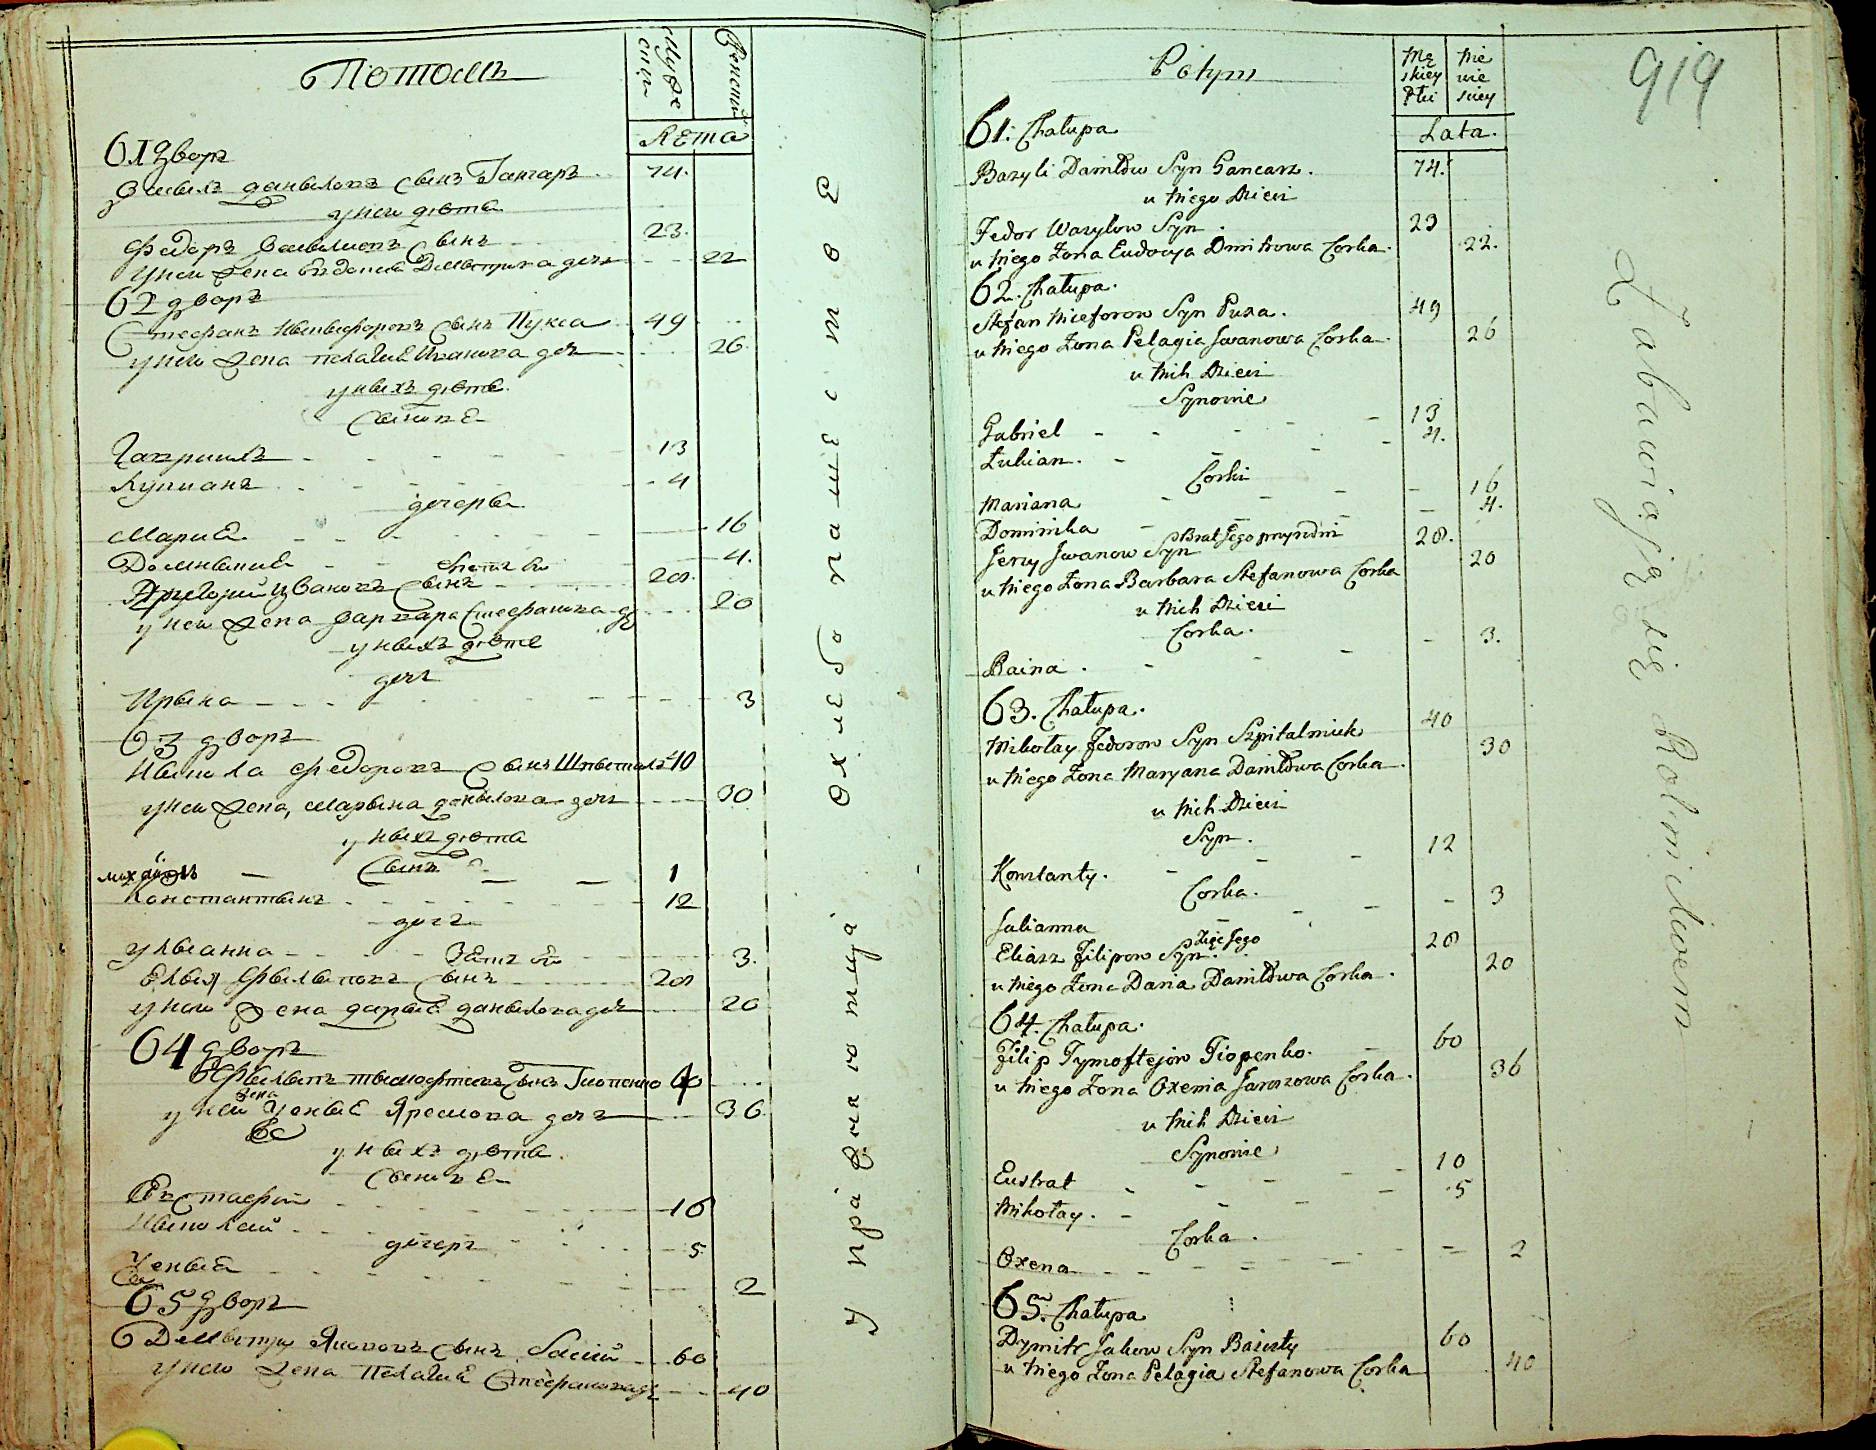 Потомъ
Мужескій
Женскій
Лета
61 дворъ
Василъ Данилокъ сынъ Ганчаръ 74.
у него дѣти
Федоръ Василиокъ сынъ 23.
у него жена Евдокия Дмитрика дочъ 22
62 дворъ
Стефанъ Никифорокъ сынъ Пукса 49
у него жена Пелагия Иванока доч 26
у нихъ дѣти
сынокЕ
Гавриилъ 13
Лукианъ 4
дочеры
Мария 16
Доминика 4.
Григорий Иванокъ сынъ 28.
у него жена Варвара Стефанока до 20
у нихъ дѣте
дочъ
Ирына 3
63 дворъ
Никола Федорокъ сынъ Шпиталъ 40
у него жена, Марына Данылока дочъ 30
у нихъ дѣти
сынъ
Михаилъ 1
Константынъ 12
дочъ
Улыанна 3.
Зять его
Елыя Фылыпокъ сынъ 28
у него жена Дарыя Данылока доч 20
64 дворъ
Фылыпъ Тымофтеокъ сынъ Гиопенко 60
у него жена Ксения Яремока дочъ 36
у нихъ дѣти
сынокЕ
Евстафий 10
Николай 5.
дочеръ
Ксения 2
65 дворъ
Дымытръ Якококъ сынъ 60
у него жена Пелагия Стефанока до 40
Упражняются хлебопашестое
Potym
Męskiey Płci
Niewieskiey
Lata.
919
61. Chałupa
Bazyli Daniłów Syn Gancarz. 74.
u Niego Dzieci
Fedor Wasylow Syn 23
u Niego Zona Eudocya Dmitrowa Corka. 22.
62. Chałupa.
Stefan Niceforow Syn Puxa. 49
u Niego Zona Pelagia Jwanowa Corka 26
u Nich Dzieci
Synowie
Gabriel 13
Łukian. 4.
Corki
Mariana 16
Dominika 4.
Brat Jego przyrodni
Jerzy Jwanow Syn 28.
u Niego Zona Barbara Stefanowa Corka 20
u Nich Dzieci
Corka.
Raina. 3.
63. Chałupa.
Mikołay Fedorow Syn Szpitalniuk 40
u Niego Zona Maryana Daniłowa Corka 30
u Nich Dzieci
Syn.
Konstanty. 12
Corka.
Julianna 3
Zięć Jego
Eliasz Filipow Syn. 28
u Niego Zona Daria Daniłowa Corka. 20
64. Chałupa.
Filip Tymoftejow Giopenko. 60
u Niego Zona Oxenia Jaroszowa Corka. 36
u Nich Dzieci
Synowie
Eustrat 10
Mikołay. 5
Corka.
Oxena 2
65. Chałupa
Dymitr Jakow Syn Basisty 60
u Niego Zona Pelagia Stefanowa Corka 40
Zabawiają się Rolnictwem